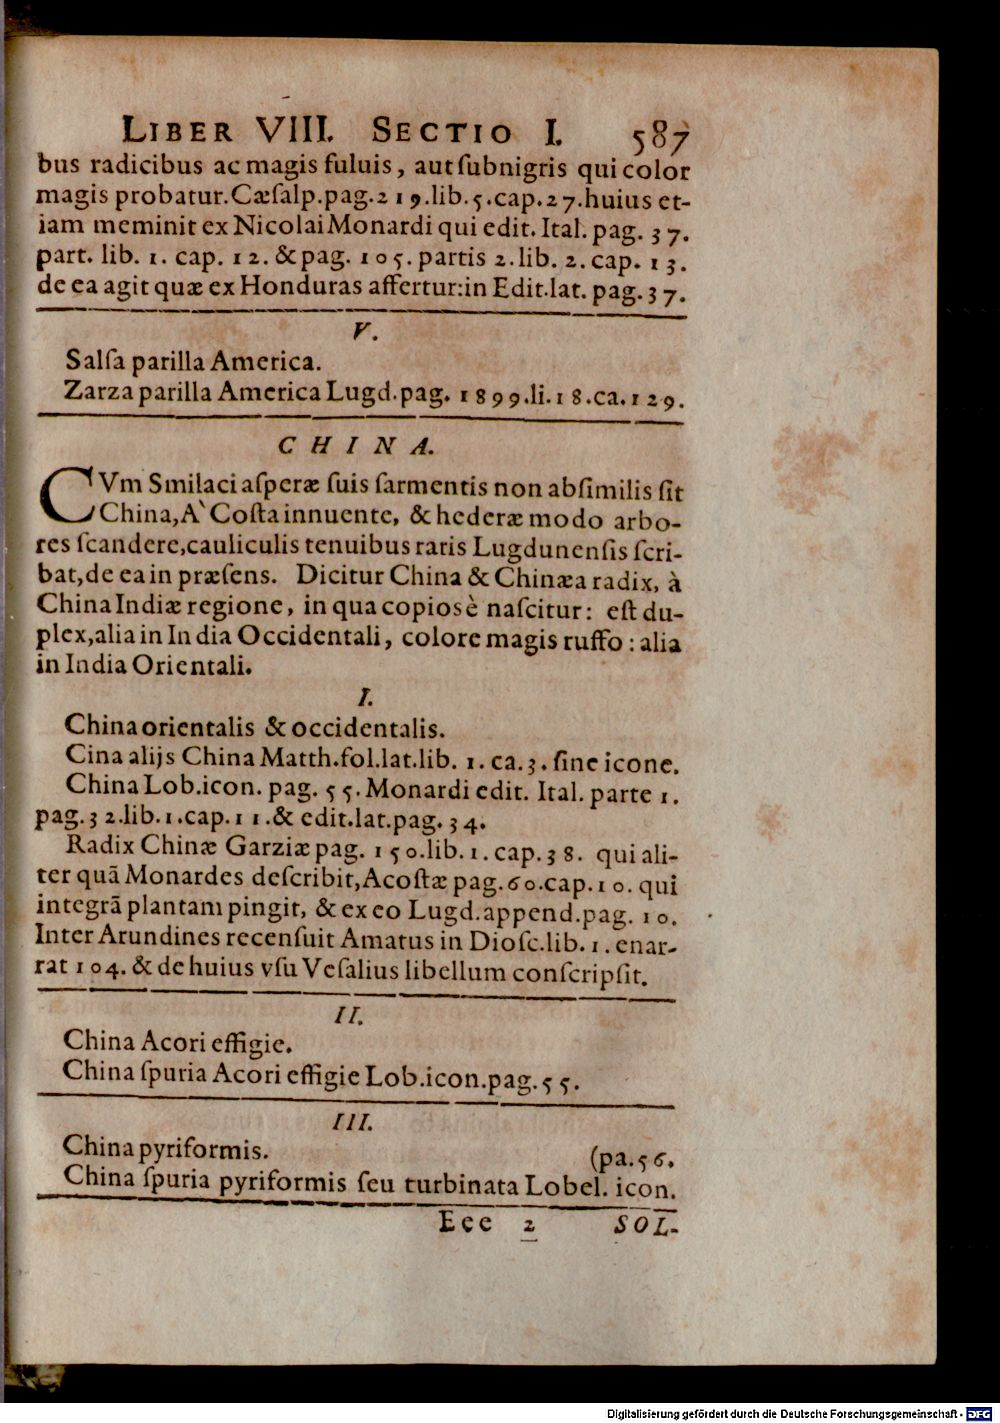 LIBER VIII. SECTIO I. 587
bus radicibus ac magis fuluis, aut ſubnigris qui color
magis probatur. Cæſalp. pag. 219. lib. 5. cap. 27. huius et-
iam meminit ex Nicolai Monardi qui edit. Ital. pag. 37.
part. lib. 1. cap. 12. & pag. 105. partis 2. lib. 2. cap. 13.
de ea agit quæ ex Honduras affertur: in Edit. lat. pag. 37.
V.
Salſa parilla America.
Zarza parilla America Lugd. pag. 1899. li. 18. ca. 129.
CHINA.
CVm Smilaci aſperæ ſuis ſarmentis non abſimilis ſit
China, A` Coſta innuente, & hederæ modo arbo-
res ſcandere, cauliculis tenuibus raris Lugdunenſis ſcri-
bat, de ea in præſens. Dicitur China & Chinæa radix, à
China Indiæ regione, in qua copiosè naſcitur: eſt du-
plex, alia in India Occidentali, colore magis ruffo: alia
in India Orientali.
I.
China orientalis & occidentalis.
Cina alijs China Matth. fol. lat. lib. 1. ca. 3. ſine icone.
China Lob. icon. pag. 55. Monardi edit. Ital. parte 1.
pag. 32. lib. 1. cap. 11. & edit. lat. pag. 34.
Radix Chinæ Garziæ pag. 150. lib. 1. cap. 38. qui ali-
ter quā Monardes deſcribit, Acoſtæ pag. 60. cap. 10. qui
integrā plantam pingit, & ex eo Lugd. append. pag. 10.
Inter Arundines recenſuit Amatus in Dioſc. lib. 1. enar-
rat 104. & de huius vſu Veſalius libellum conſcripſit.
II.
China Acori effigie.
China ſpuria Acori effigie Lob. icon. pag. 55.
III.
China pyriformis. (pa. 56.
China ſpuria pyriformis ſeu turbinata Lobel. icon.
Eee 2 SOL-
Digitalisierung gefördert durch die Deutsche Forschungsgemeinschaft - DFG